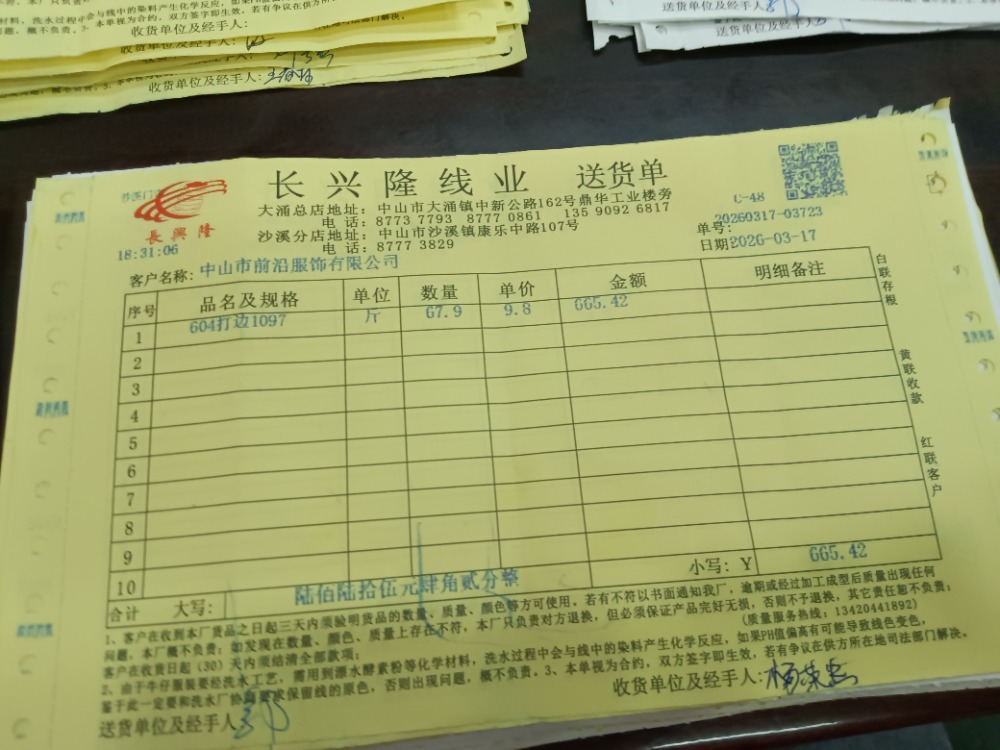 收货单位及经手人:
收货单位及经手人:
收货单位及经手人:
送货单位及经手人:
送货单位及经手人:
长兴隆线业 送货单
長興隆
大涌总店地址：中山市大涌镇中新公路162号鼎华工业楼旁
电 话：8773 7793 8777 0861 135 9092 6817
沙溪分店地址：中山市沙溪镇康乐中路107号
电 话：8777 3829
C-48
单号: 20260317-03723
日期: 2026-03-17
18:31:06
客户名称: 中山市前沿服饰有限公司
序号 品名及规格 单位 数量 单价 金额 明细备注
1 604打边1097 斤 67.9 9.8 665.42
2
3
4
5
6
7
8
9
10
小写：Y 665.42
合计 大写: 陆佰陆拾伍元肆角贰分整
白联存根
黄联收款
红联客户
1、客户在收到本厂货品之日起三天内须验明货品的数量、质量、颜色等方可使用。若有不符以书面通知我厂，逾期或经过加工成型后质量出现任何
问题，本厂概不负责；如发现在数量、颜色、质量上存在不符，本厂只负责对方退换，但必须保证产品完好无损，否则不予退换，其它责任恕不负责；
客户在收货日起（30）天内须结清全部款项； (质量服务热线：13420441892)
2、由于牛仔服装要经洗水工艺，需用到漂水酵素粉等化学材料，洗水过程中会与线中的染料产生化学反应，如果PH值偏高有可能导致线色变色，
鉴于此一定要和洗水厂协商要求保留线的原色，否则出现问题，概不负责。3、本单视为合约，双方签字即生效，若有争议在供方所在地司法部门解决。
送货单位及经手人:
收货单位及经手人: 杨荣忠